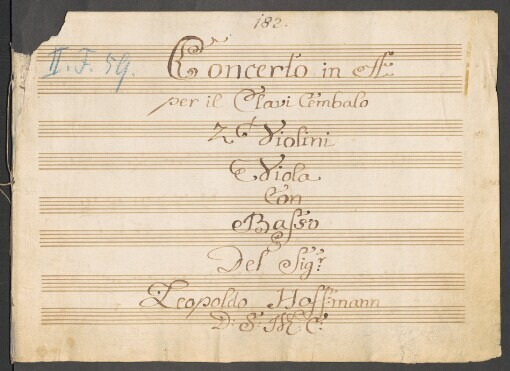 182.
II. F. 59.
Concerto in
per il Clavi Cembalo
2 Violini
e Viola
Con
Basso
Del Sig:r
Leopoldo Hoffmann